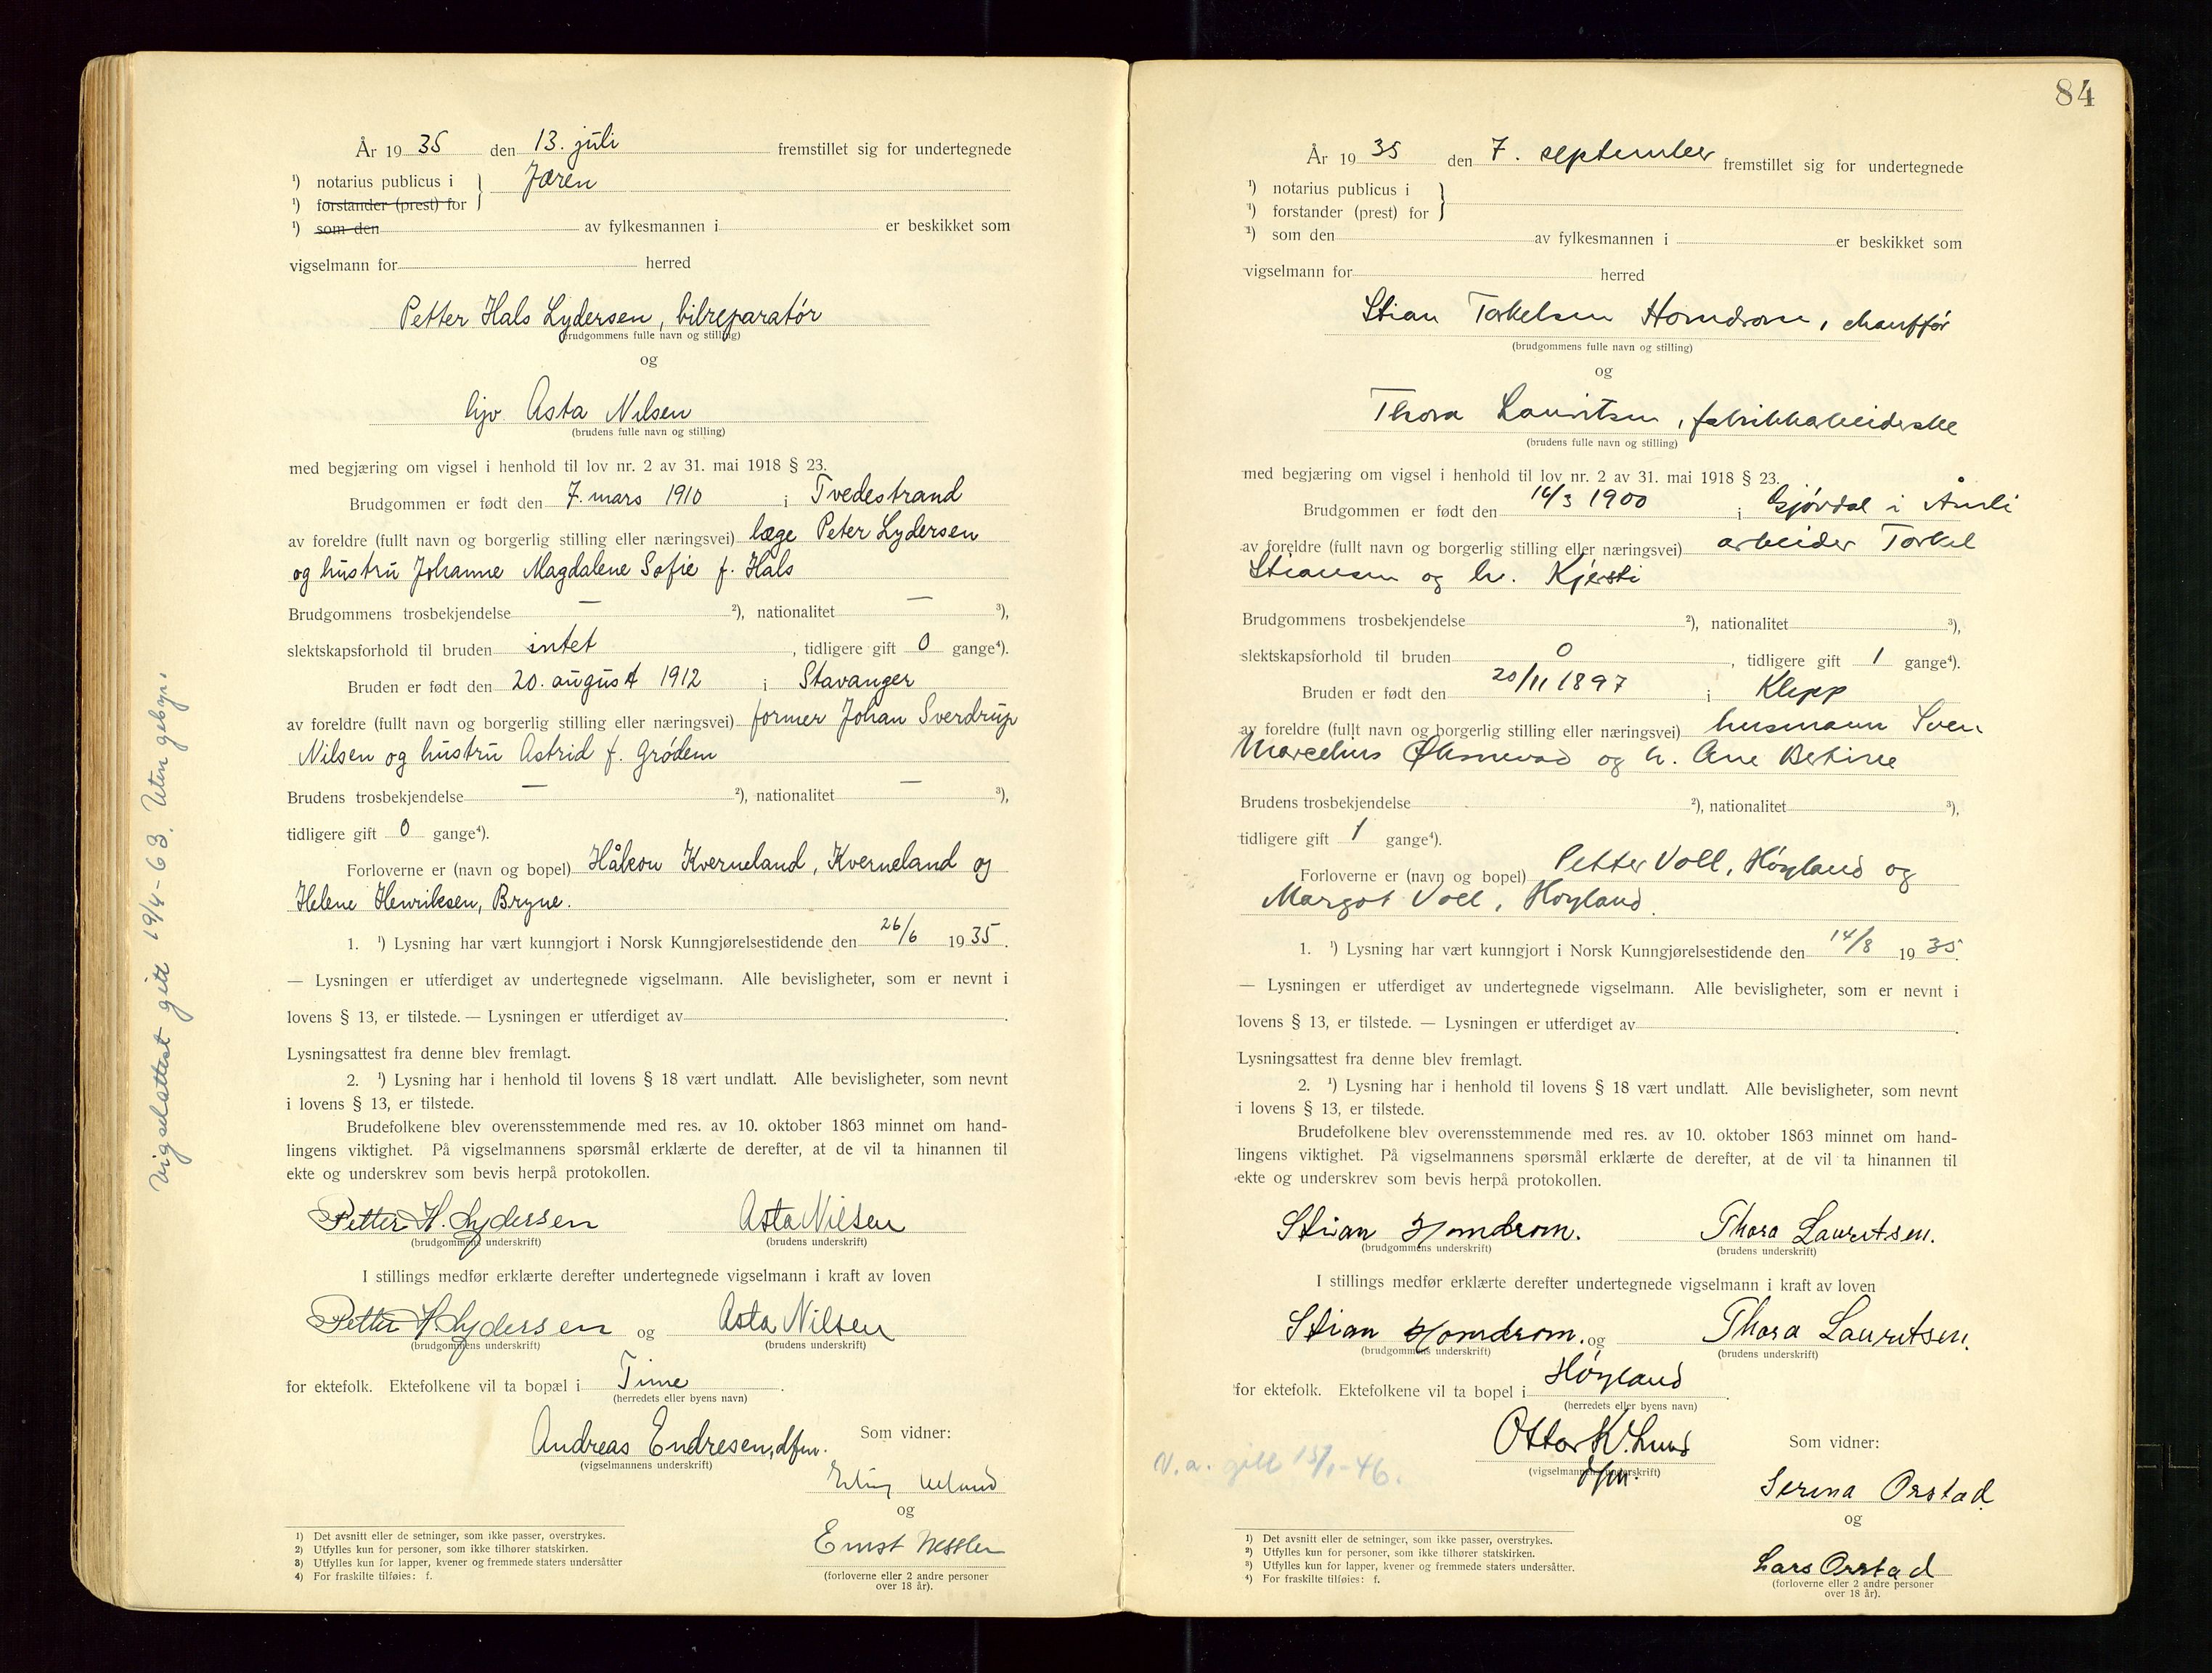 År 19 35 den 13. juli fremstillet sig for undertegnede
¹) notarius publicus i } Jæren
¹) forstander (prest) for
¹) som den av fylkesmannen i er beskikket som
vigselmann for herred
Petter Hals Lydersen, bilreparatør
(brudgommens fulle navn og stilling)
og
hjv Asta Nilsen
(brudens fulle navn og stilling)
med begjæring om vigsel i henhold til lov nr. 2 av 31. mai 1918 § 23.
Brudgommen er født den 7. mars 1910 i Tvedestrand
av foreldre (fullt navn og borgerlig stilling eller næringsvei) læge Peter Lydersen
og hustru Johanne Magdalene Sofie f. Hals
Brudgommens trosbekjendelse — ²), nationalitet — ³),
slektskapsforhold til bruden intet, tidligere gift 0 gange⁴).
Bruden er født den 20. august 1912 i Stavanger
av foreldre (fullt navn og borgerlig stilling eller næringsvei) former Johan Sverdrup
Nilsen og hustru Astrid f. Grødem
Brudens trosbekjendelse — ²), nationalitet — ³),
tidligere gift 0 gange⁴).
Forloverne er (navn og bopel) Håkon Kverneland, Kverneland og
Helene Henriksen, Bryne.
1. ¹) Lysning har vært kunngjort i Norsk Kunngjørelsestidende den 26/6 19 35.
— Lysningen er utferdiget av undertegnede vigselmann. Alle bevisligheter, som er nevnt i
lovens § 13, er tilstede. — Lysningen er utferdiget av .
Lysningsattest fra denne blev fremlagt.
2. ¹) Lysning har i henhold til lovens § 18 vært undlatt. Alle bevisligheter, som nevnt
i lovens § 13, er tilstede.
Brudefolkene blev overensstemmende med res. av 10. oktober 1863 minnet om hand-
lingens viktighet. På vigselmannens spørsmål erklærte de derefter, at de vil ta hinannen til
ekte og underskrev som bevis herpå protokollen.
Petter H. Lydersen Asta Nilsen
(brudgommens underskrift) (brudens underskrift)
I stillings medfør erklærte derefter undertegnede vigselmann i kraft av loven
Petter H. Lydersen og Asta Nilsen
(brudgommens underskrift) (brudens underskrift)
for ektefolk. Ektefolkene vil ta bopæl i Time .
(herredets eller byens navn)
Andreas Endresen, dfm. Som vidner:
(vigselmannens underskrift)
og
Ernst
(forloverne eller 2 andre personer
over 18 år).
1) Det avsnitt eller de setninger, som ikke passer, overstrykes.
2) Utfylles kun for personer, som ikke tilhører statskirken.
3) Utfylles kun for lapper, kvener og fremmede staters undersåtter
4) For fraskilte tilføies: f.
Vigselattest gitt 19/4-63. Uten gebyr.
84
År 19 35 den 7. september fremstillet sig for undertegnede
¹) notarius publicus i }
¹) forstander (prest) for
¹) som den av fylkesmannen i er beskikket som
vigselmann for herred
Stian Torkelsen Homdrom, chauffør
(brudgommens fulle navn og stilling)
og
Thora Lauritsen, fabrikkarbeiderske
(brudens fulle navn og stilling)
med begjæring om vigsel i henhold til lov nr. 2 av 31. mai 1918 § 23.
Brudgommen er født den 16/3 1900 i Gjøvdal i Åmli
av foreldre (fullt navn og borgerlig stilling eller næringsvei) arbeider Torkel
Stiansen og h. Kjersti
Brudgommens trosbekjendelse ²), nationalitet ³),
slektskapsforhold til bruden 0, tidligere gift 1 gange⁴).
Bruden er født den 20/11 1897 i Klepp
av foreldre (fullt navn og borgerlig stilling eller næringsvei) husmann Sven
Marcelius Øksnevad og h. Ane Bertine
Brudens trosbekjendelse ²), nationalitet ³),
tidligere gift 1 gange⁴).
Forloverne er (navn og bopel) Petter Voll, Høyland og
Margot Voll, Høyland.
1. ¹) Lysning har vært kunngjort i Norsk Kunngjørelsestidende den 14/8 19 35.
— Lysningen er utferdiget av undertegnede vigselmann. Alle bevisligheter, som er nevnt i
lovens § 13, er tilstede. — Lysningen er utferdiget av .
Lysningsattest fra denne blev fremlagt.
2. ¹) Lysning har i henhold til lovens § 18 vært undlatt. Alle bevisligheter, som nevnt
i lovens § 13, er tilstede.
Brudefolkene blev overensstemmende med res. av 10. oktober 1863 minnet om hand-
lingens viktighet. På vigselmannens spørsmål erklærte de derefter, at de vil ta hinannen til
ekte og underskrev som bevis herpå protokollen.
Stian Homdrom. Thora Lauritsen.
(brudgommens underskrift) (brudens underskrift)
I stillings medfør erklærte derefter undertegnede vigselmann i kraft av loven
Stian Homdrom. og Thora Lauritsen.
(brudgommens underskrift) (brudens underskrift)
for ektefolk. Ektefolkene vil ta bopel i Høyland .
(herredets eller byens navn)
Otto K. Lund Som vidner:
(vigselmannens underskrift)
dfm.
V.a. gitt 15/1-46.
Serina Orstad
og
Lars Orstad
(forloverne eller 2 andre personer
over 18 år).
1) Det avsnitt eller de setninger, som ikke passer, overstrykes.
2) Utfylles kun for personer, som ikke tilhører statskirken.
3) Utfylles kun for lapper, kvener og fremmede staters undersåtter.
4) For fraskilte tilføies: f.